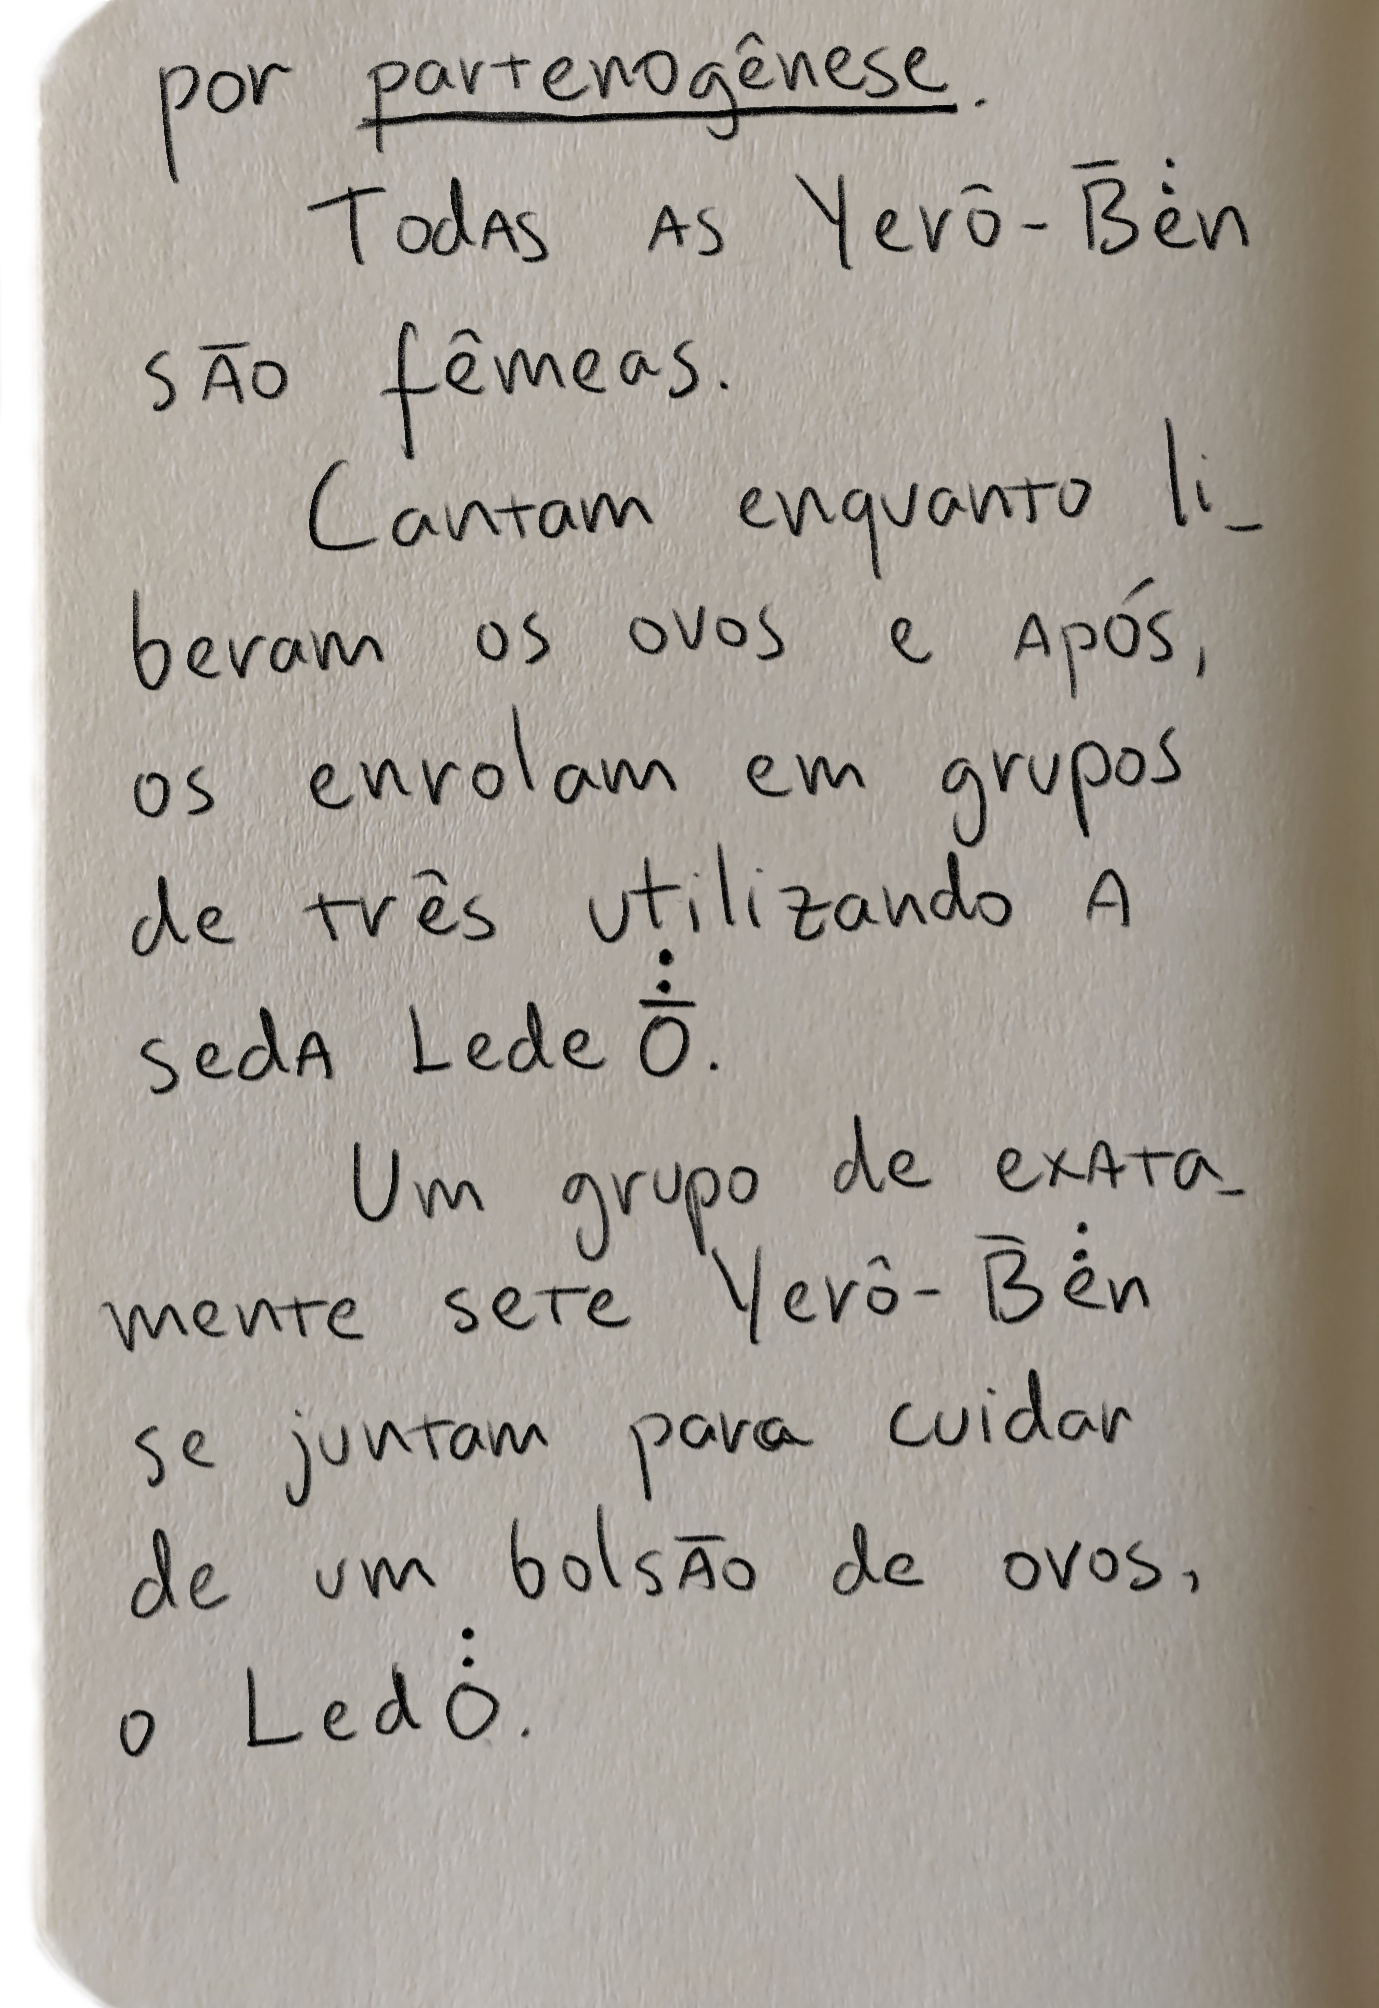 por partenogênese.
Todas as Yerô-B̄ėn
são fêmeas.
Cantam enquanto li_
beram os ovos e após,
os enrolam em grupos
de três utilizando a
seda Lede Ō̇̇.
Um grupo de exata_
mente sete Yerô-B̄ė̇n
se juntam para cuidar
de um bolsão de ovos,
o Ledȯ̇.